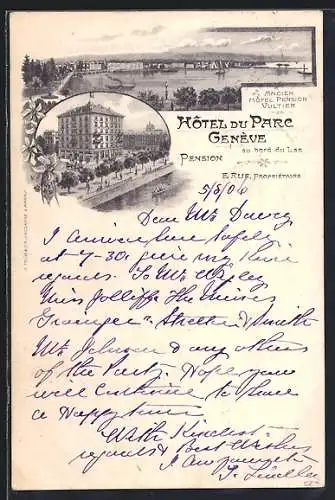 Ancien
Hôtel Pension
Vultier
Hôtel du Parc
Genève
au bord du Lac
Pension
E. Ruf, Propriétaire
5/8/06
Dear Mr
I arrived here safely
at 7-30 give my kind
regards. To Mr
Miss Jolliffe The Misses
Grainger & Smith
Mr Johnson & any others
of the Party. Hope you
will continue to have
a Happy time
With Kindest
regards & Best Wishes
I am yours